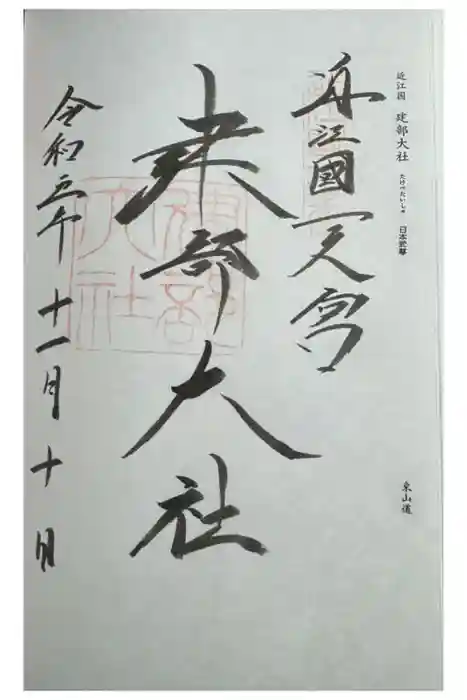 近江国 建部大社 たけべたいしゃ 日本武尊
東山道
近江國一之宮
建部大社
令和三年 十一月 十日
建部大社